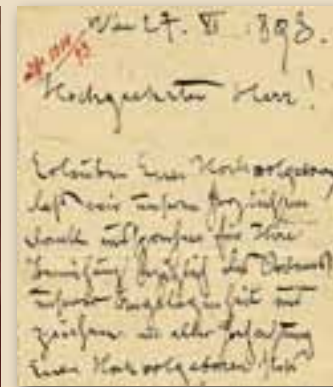 Wien 27. XI 1893.
Hochgeehrter Herr!
Erlauben Euer Hochwolgeboren
daß wir unsern herzlichsten
Dank aussprechen für Ihre
Bemühung bezüglich des
unserer Angelegenheit und
zeichnen mit aller Hochachtung
Euer Hochwolgeboren